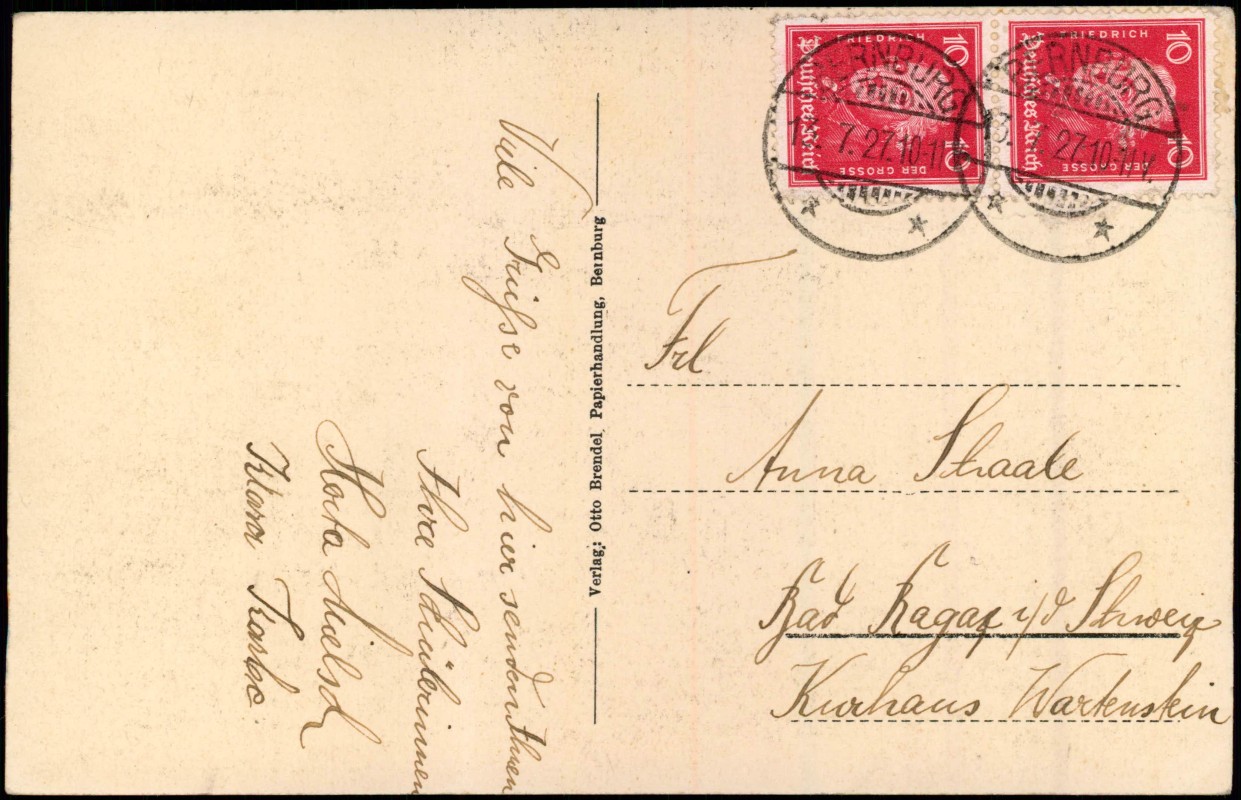 Viele Grüsse von hier senden Ihnen
Ihre Schülerinnen
Klara
Verlag: Otto Brendel, Papierhandlung, Bernburg
FRIEDRICH
10
Deutsches Reich
10
DER GROSSE
FRIEDRICH
10
Deutsches Reich
10
DER GROSSE
BERNBURG
7.27.10-11
BERNBURG
7.27.10-11V.
Frl
Anna Straate
Bad Ragaz i/d Schweiz
Kurhaus Wartenstein